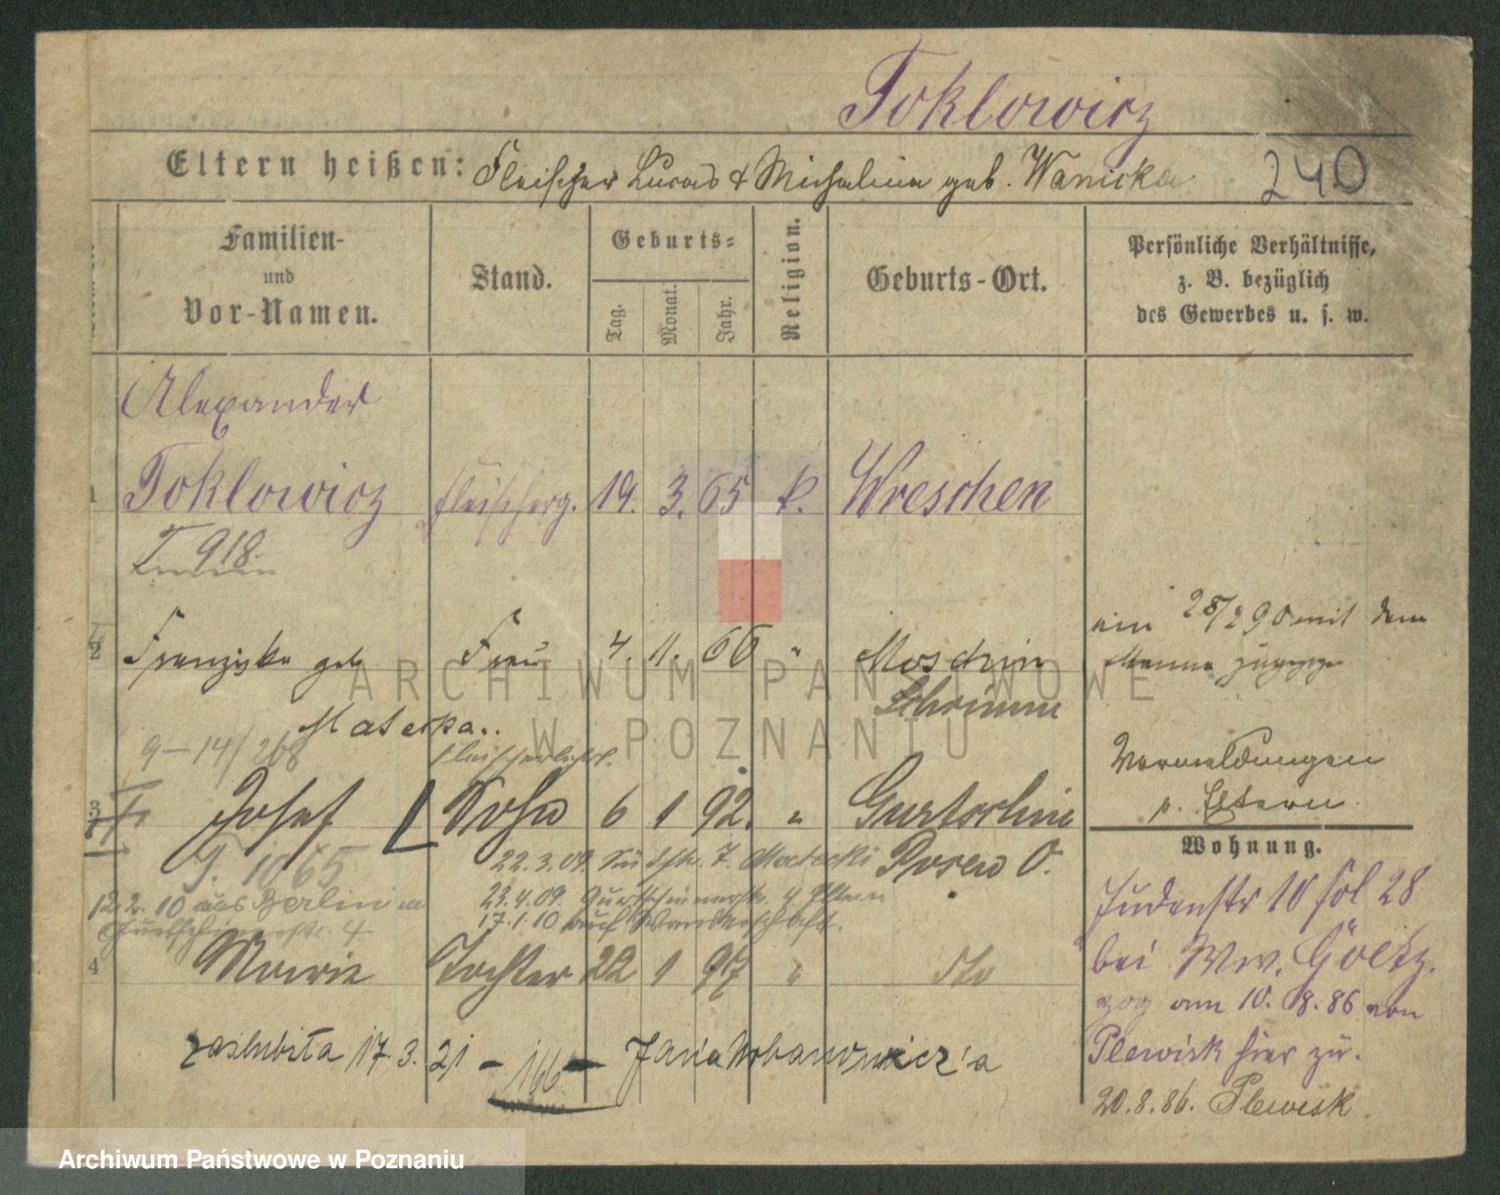 Toklowicz
Eltern heißen: Fleischer Lucas & Michalina geb. Wanicka 240
Familien-
und
Vor-Namen.
Stand.
Geburts-
Tag.
Monat.
Jahr.
Religion.
Geburts-Ort.
Persönliche Verhältnisse,
z. B. bezüglich
des Gewerbes u. s. w.
Alexander
1 Toklowicz Fleischerg. 19. 3. 65 k. Wreschen
T 918
2 Franziska geb Frau 4. 11. 66 " Moschin
Schrimm
Mateska..
9-14/268 Fleischerlehrl.
3 Josef Sohn 6 1 92. " Gurtschin
Posen O.
T. 1065
22.3.09. Südstr. 7. Matecki
23.4.09. Gurtschinerstr. 4 Eltern
17.1.10 auf Wanderschaft.
12.2.10 aus Berlin in
Gurtschinerstr. 4
4 Marie Tochter 22 1 97 " dto
zaślubiła 17.3.21 - 166 - Jana Urbanowicz'a
28/2 90 mit dem
Manne
Vormeldungen
p. Eltern.
Wohnung.
Judenstr 10 bei Ww.
zog am 10. 8. 86 von
Plewisk hier zu.
20.8.86. Plewisk.
ARCHIWUM PAŃSTWOWE
W POZNANIU
Archiwum Państwowe w Poznaniu